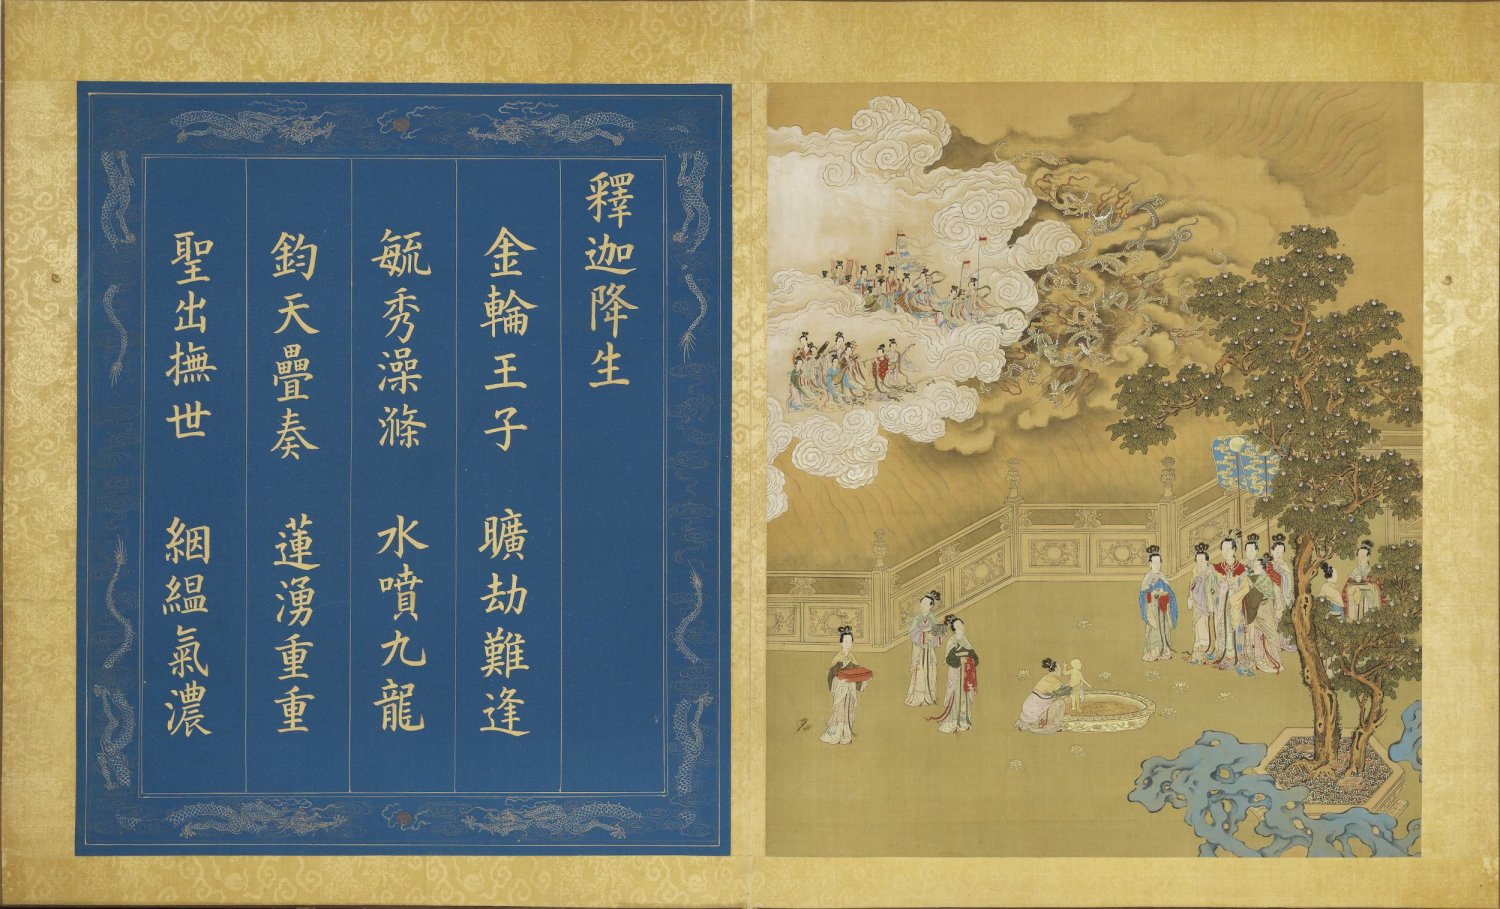 釋迦降生
金輪王子 曠劫難逢
毓秀澡滌 水噴九龍
鈞天疊奏 蓮湧重重
聖出撫世 絪縕氣濃